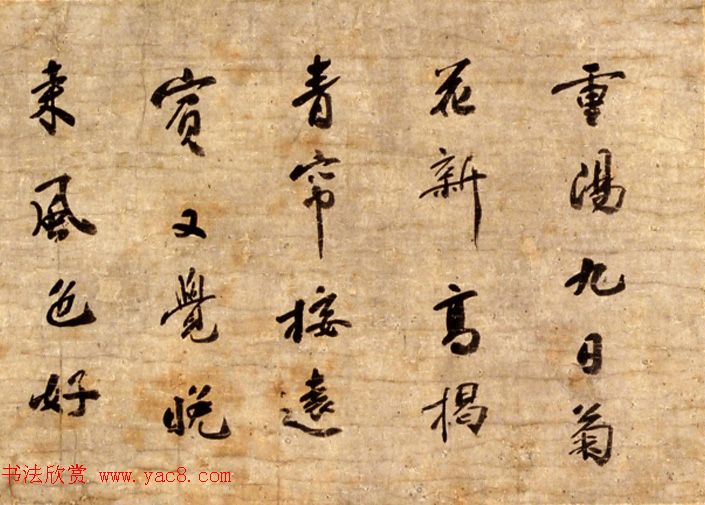 重陽九日菊
花新高揭
青帘接遠
賓又覺晚
来風色好
书法欣赏 www.yac8.com